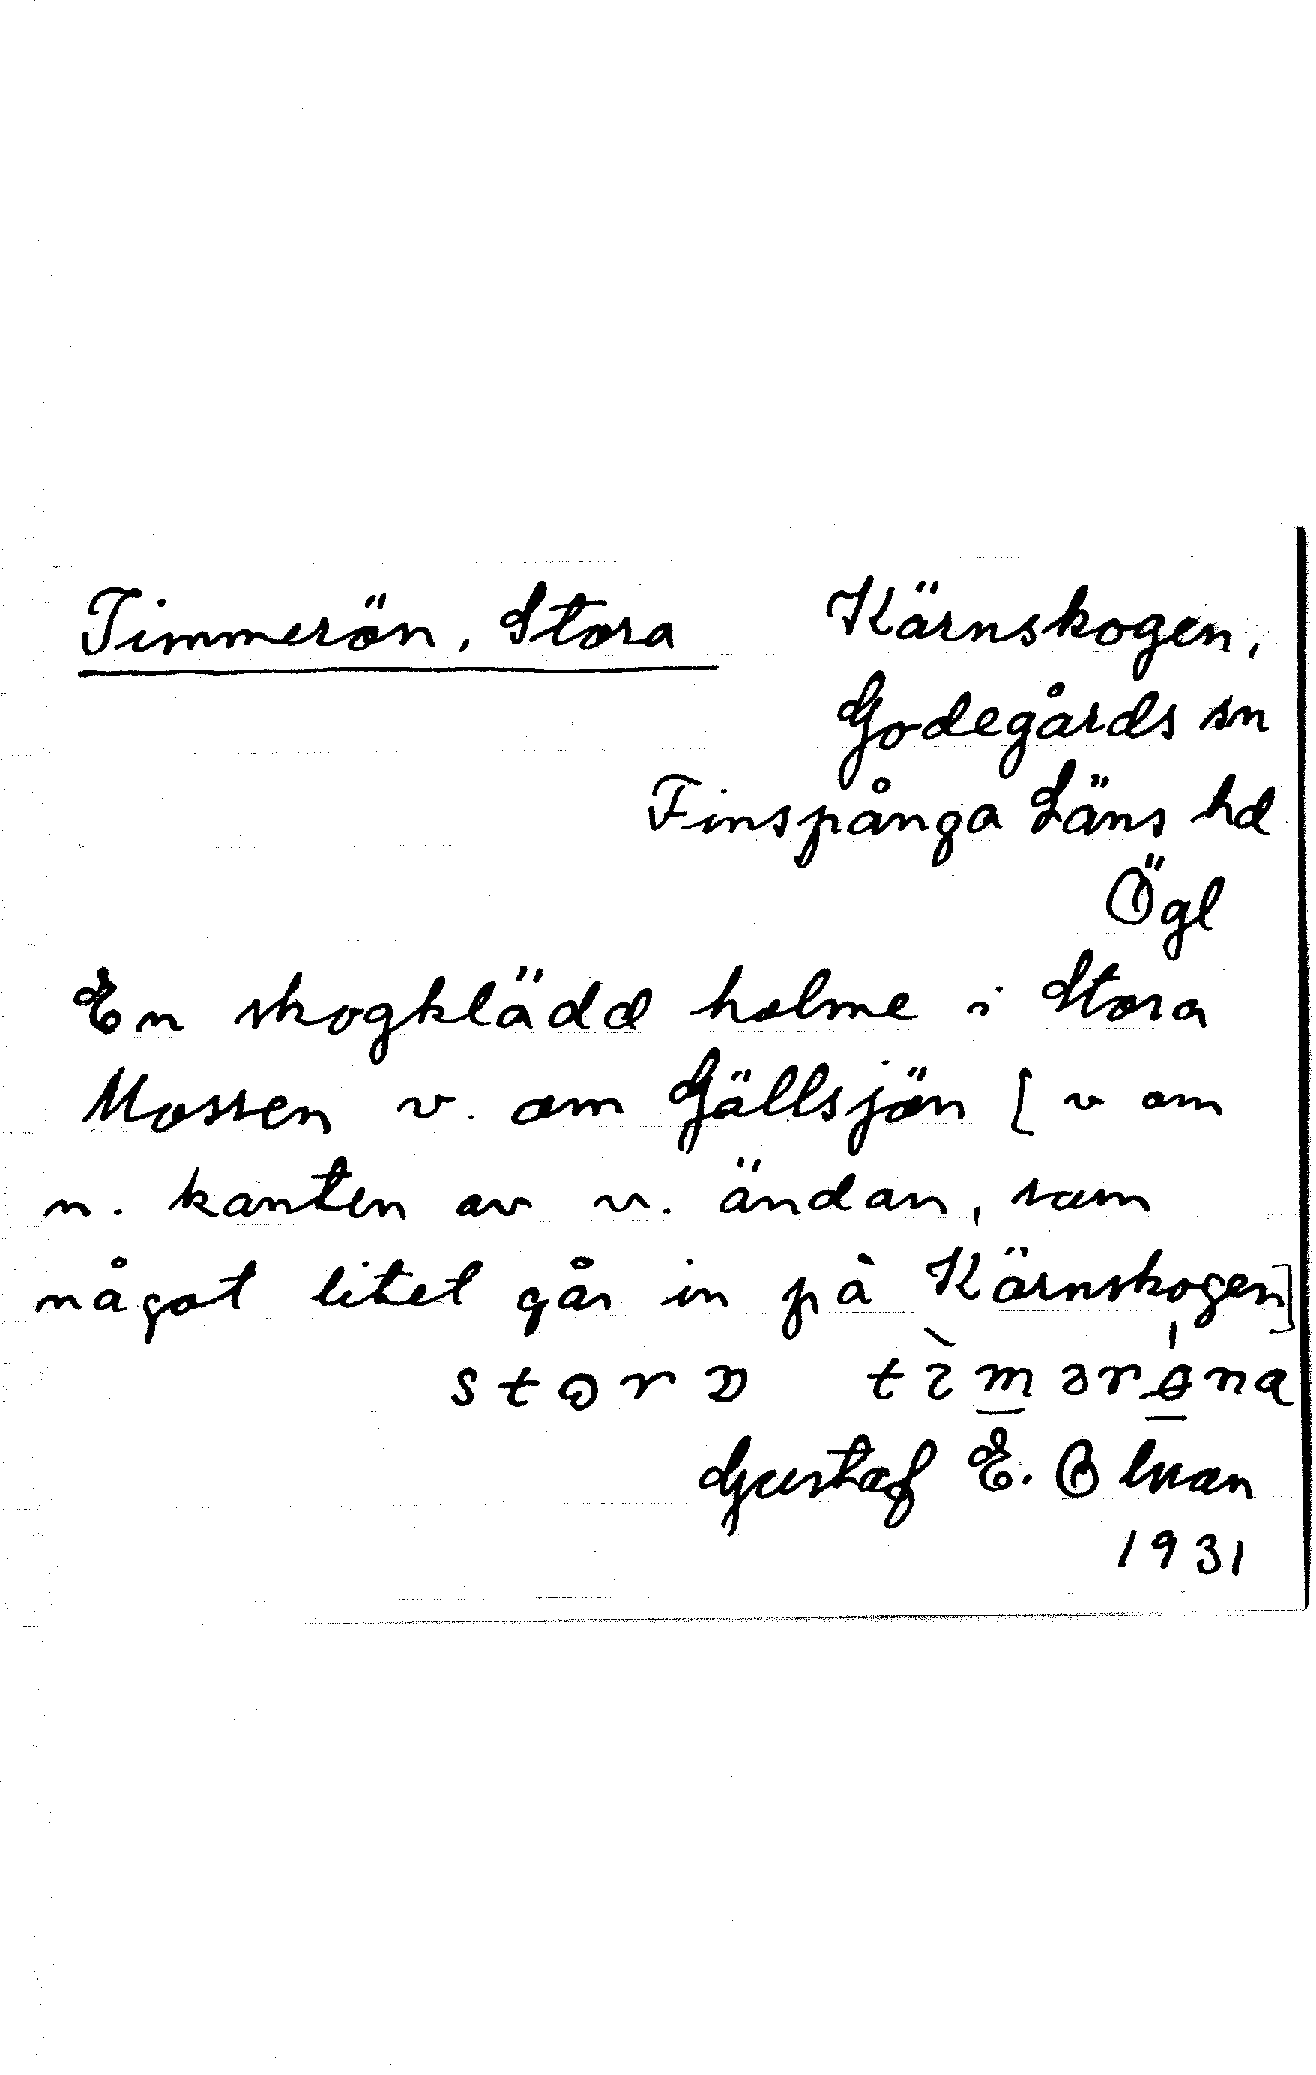 Timmerön, Stora
Kärnskogen,
Godegårds sn
Finspånga Läns hd
Ögl
En skogklädd holme i Stora
Mossen v. om Gällsjön [v om
n. kanten av v. ändan, som
något litet går in på Kärnskogen]
Gustaf E. Olson
1931